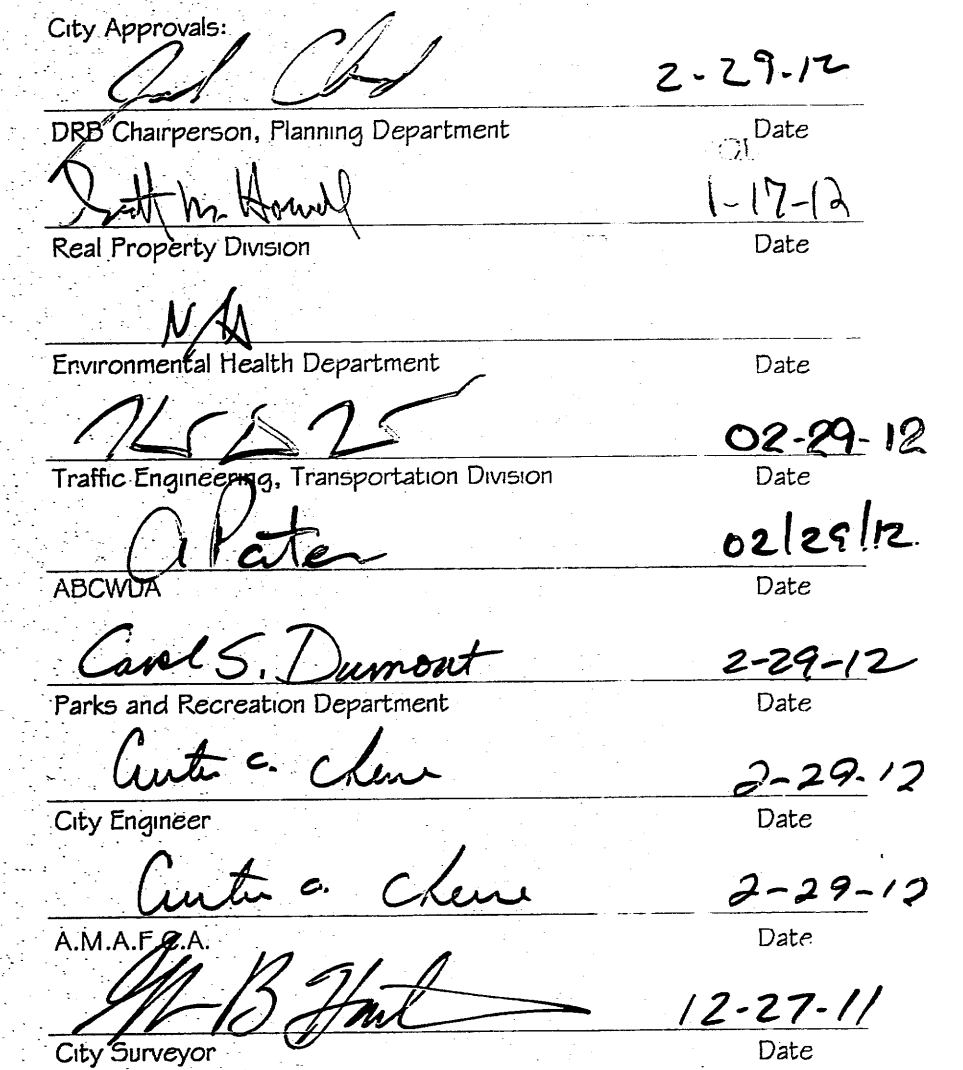 City Approvals:
2-29-12
DRB Chairperson, Planning Department Date
1-17-12
Real Property Division Date
N/A
Environmental Health Department Date
02-29-12
Traffic Engineering, Transportation Division Date
02/29/12
ABCWUA Date
Carol S. Dumont 2-29-12
Parks and Recreation Department Date
Curtis a. Cherne 2-29-12
City Engineer Date
Curtis a. Cherne 2-29-12
A.M.A.F.C.A. Date
12-27-11
City Surveyor Date